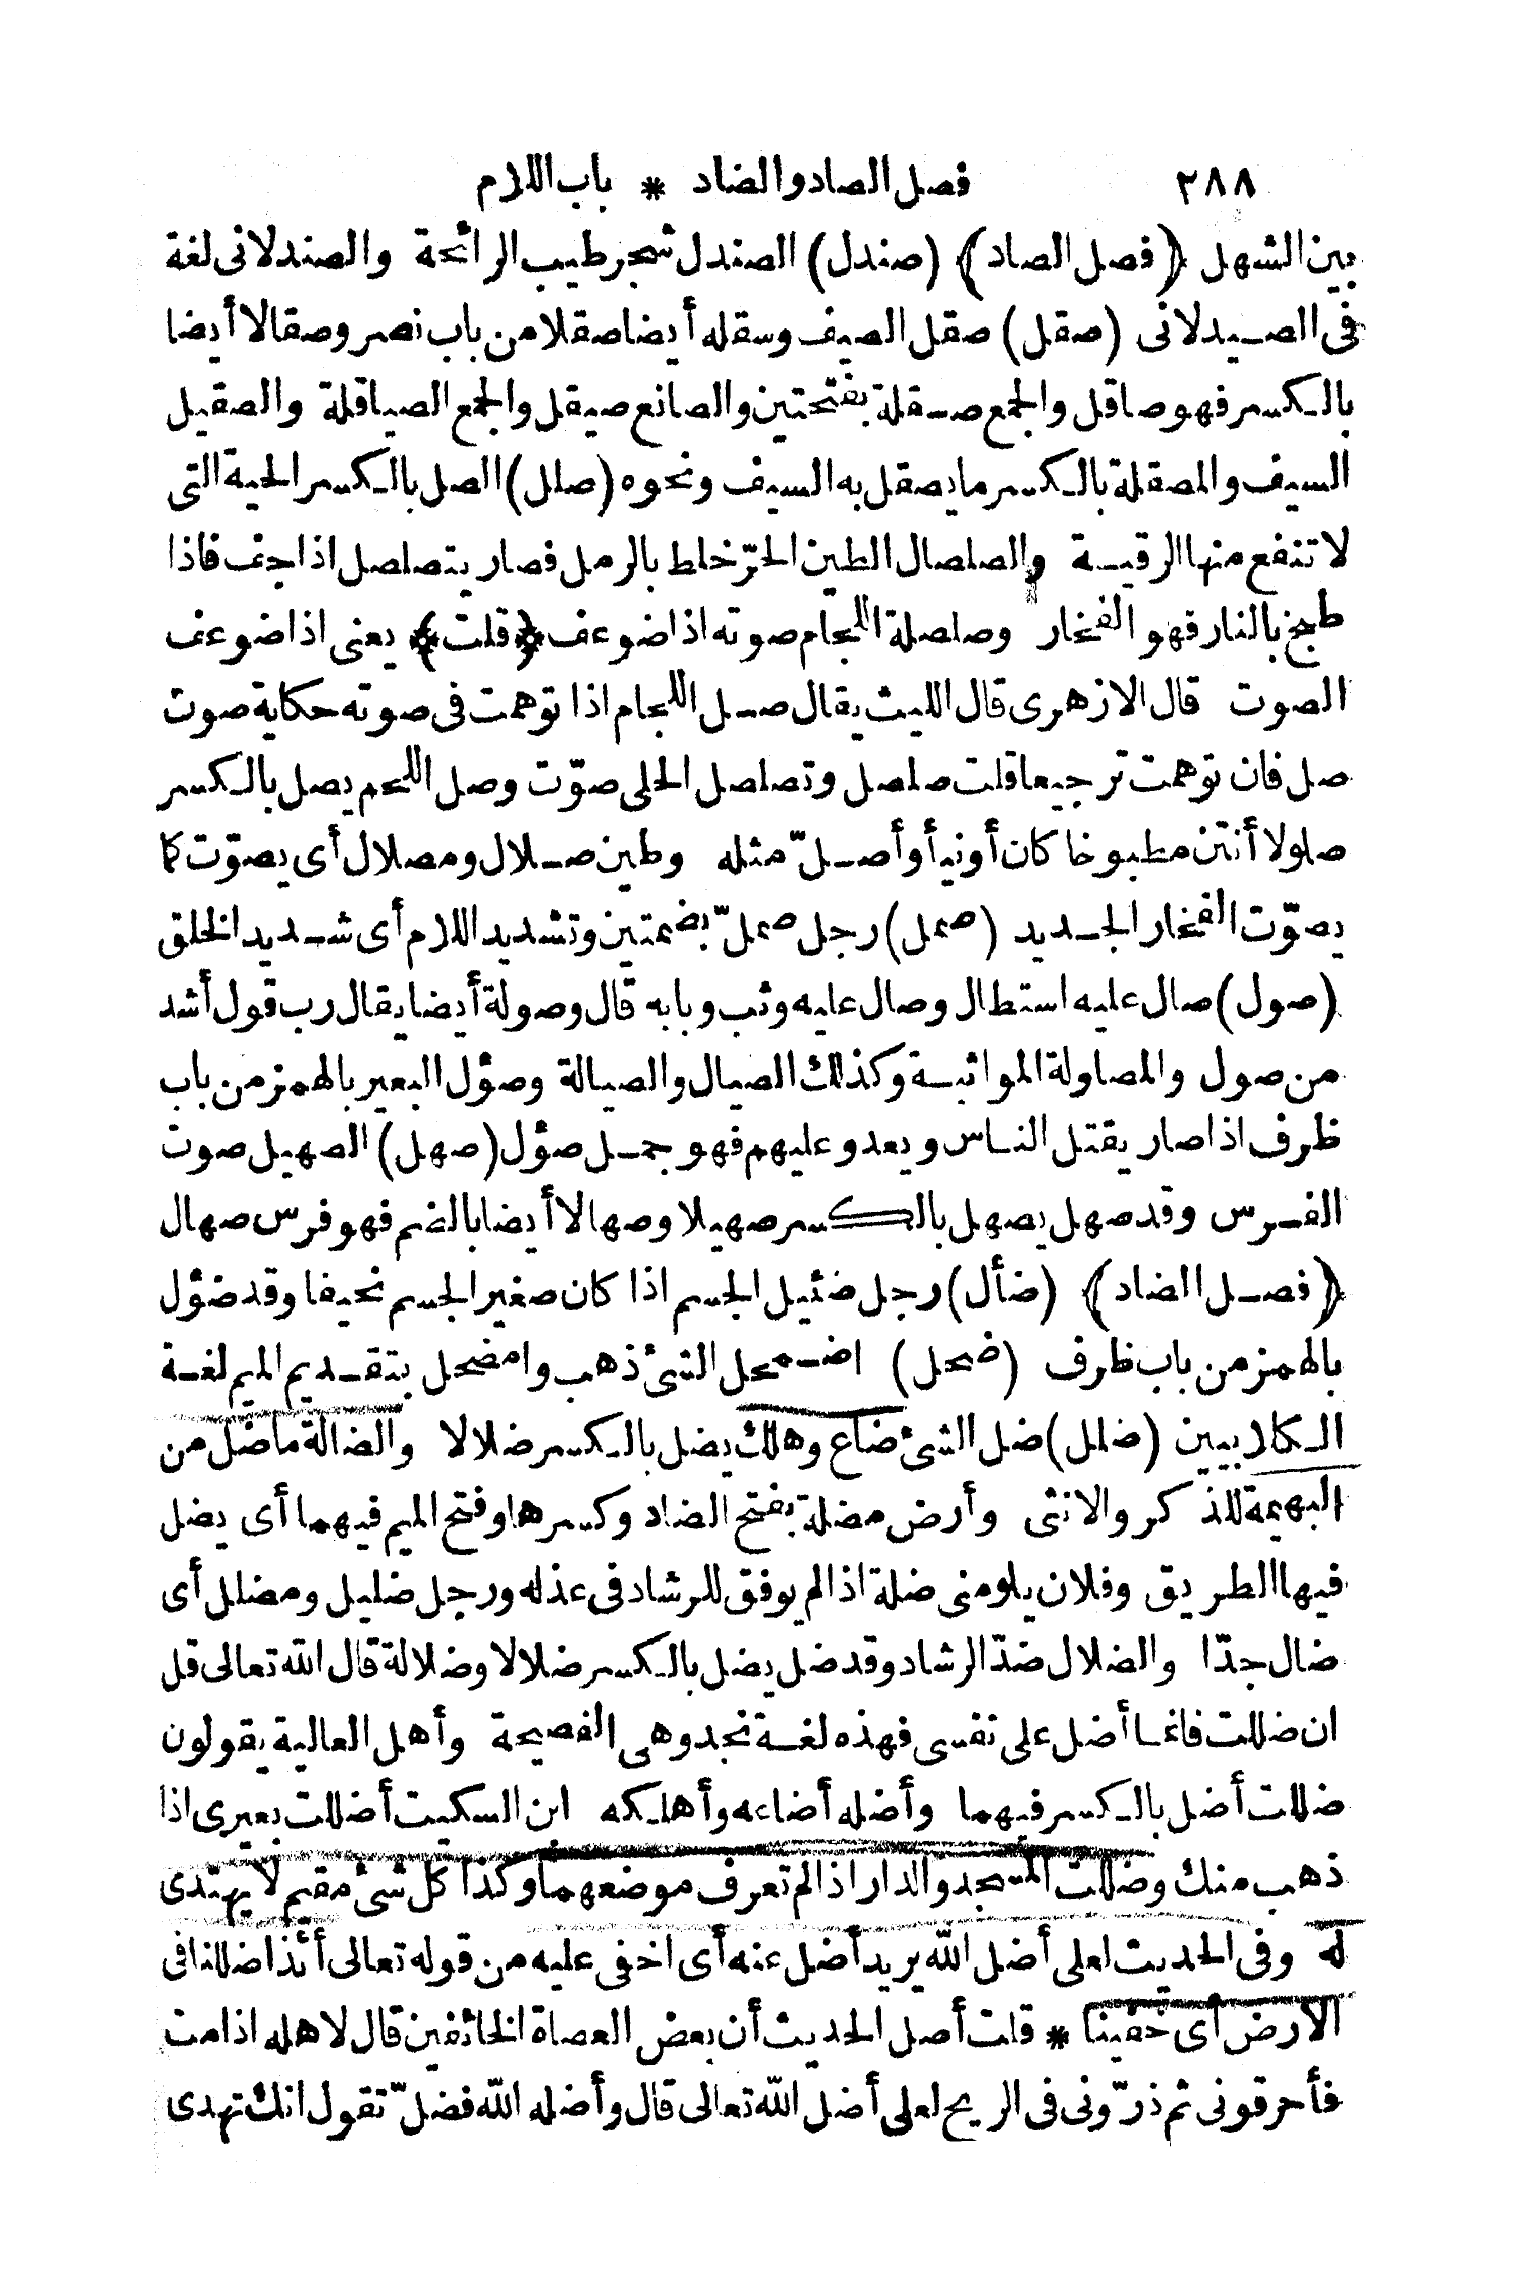 ٢٨٨ فصل الصاد والضاد * باب اللام
بين الشهل ﴿فصل الصاد﴾ (صندل) الصندل شجر طيب الرائحة والصندلانى لغة
فى الصيدلانى (صقل) صقل السيف وسقله أيضا صقلا من باب نصر وصقالا أيضا
بالكسر فهو صاقل والجمع صقلة بفتحتين والصانع صيقل والجمع الصياقلة والصقيل
السيف والمصقلة بالكسر ما يصقل به السيف ونحوه (صلل) الصل بالكسر الحية التى
لا تنفع منها الرقية والصلصال الطين الحرّ خلط بالرمل فصار يتصلصل اذا جف فاذا
طبخ بالنار فهو الفخار وصلصلة اللجام صوته اذا ضوعف ﴿قلت﴾ يعنى اذا ضوعف
الصوت قال الازهرى قال الليث يقال صل اللجام اذا توهمت فى صوته حكاية صوت
صل فان توهمت ترجيعا قلت صلصل وتصلصل الحلى صوّت وصل اللحم يصل بالكسر
صلولا أنتن مطبوخا كان أونيأ وأصلّ مثله وطين صلال ومصلال أى يصوّت كما
يصوّت الفخار الجديد (صمل) رجل صملّ بضمتين وتشديد اللام أى شديد الخلق
(صول) صال عليه استطال وصال عليه وثب وبابه قال وصولة أيضا يقال رب قول أشد
من صول والمصاولة المواثبة وكذلك الصيال والصيالة وصؤل البعير بالهمز من باب
ظرف اذا صار يقتل الناس ويعدو عليهم فهو جمل صؤل (صهل) الصهيل صوت
الفرس وقد صهل يصهل بالكسر صهيلا وصهالا أيضا بالضم فهو فرس صهال
﴿فصل الضاد﴾ (ضأل) رجل ضئيل الجسم اذا كان صغير الجسم نحيفا وقد ضؤل
بالهمز من باب ظرف (ضحل) اضمحل الشئ ذهب وامضحل بتقديم الميم لغة
الكلابيين (ضلل) ضل الشئ ضاع وهلك يضل بالكسر ضلالا والضالة ما ضل من
البهيمة للذكر والانثى وأرض مضلة بفتح الضاد وكسرها وفتح الميم فيهما أى يضل
فيها الطريق وفلان يلومنى ضلة اذا لم يوفق للرشاد فى عذله ورجل ضليل ومضلل أى
ضال جدّا والضلال ضدّ الرشاد وقد ضل يضل بالكسر ضلالا وضلالة قال الله تعالى قل
ان ضللت فانما أضل على نفسى فهذه لغة نجد وهى الفصيحة وأهل العالية يقولون
ضللت أضل بالكسر فيهما وأضله أضاعه وأهلكه ابن السكيت أضللت بعيرى اذا
ذهب منك وضللت المسجد والدار اذا لم تعرف موضعهما وكذا كل شئ مقيم لا يهتدى
له وفى الحديث لعلى أضل الله يريد أضل عنه أى اخفى عليه من قوله تعالى أئذا ضللنا فى
الارض أى خفينا * قلت أصل الحديث أن بعض العصاة الخائفين قال لاهله اذا مت
فأحرقونى ثم ذرّونى فى الريح لعلى أضل الله تعالى قال وأضله الله فضلّ تقول انك تهدى